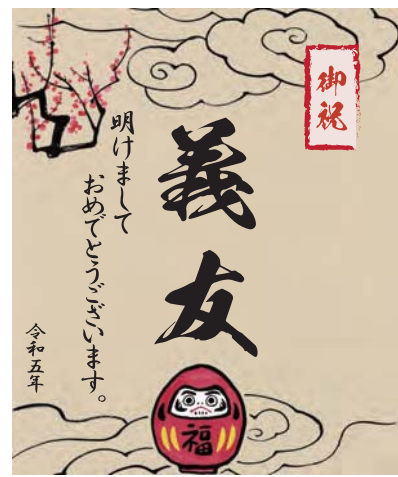 御祝
義友
明けまして
おめでとうございます。
令和五年
福